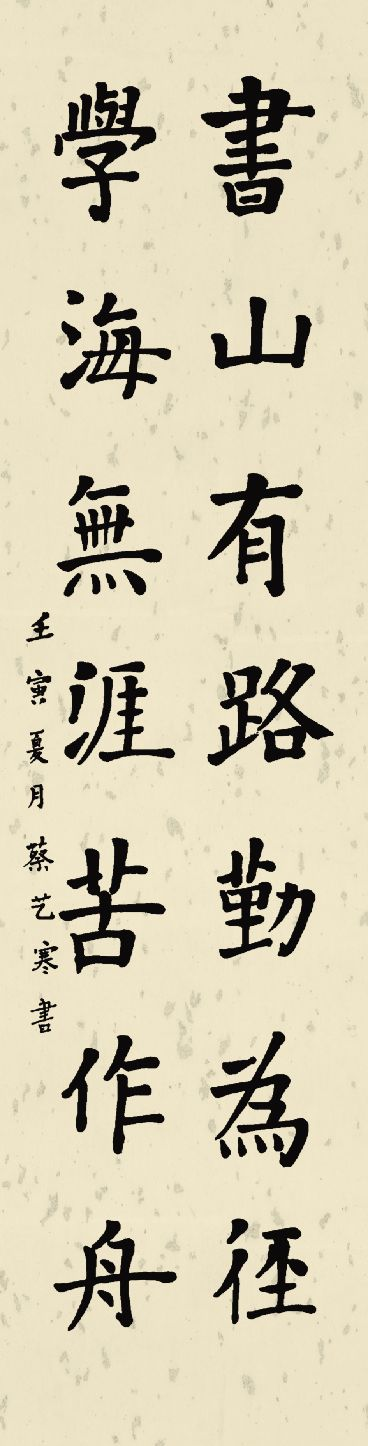 書山有路勤為徑
學海無涯苦作舟
壬寅夏月蔡艺寒書